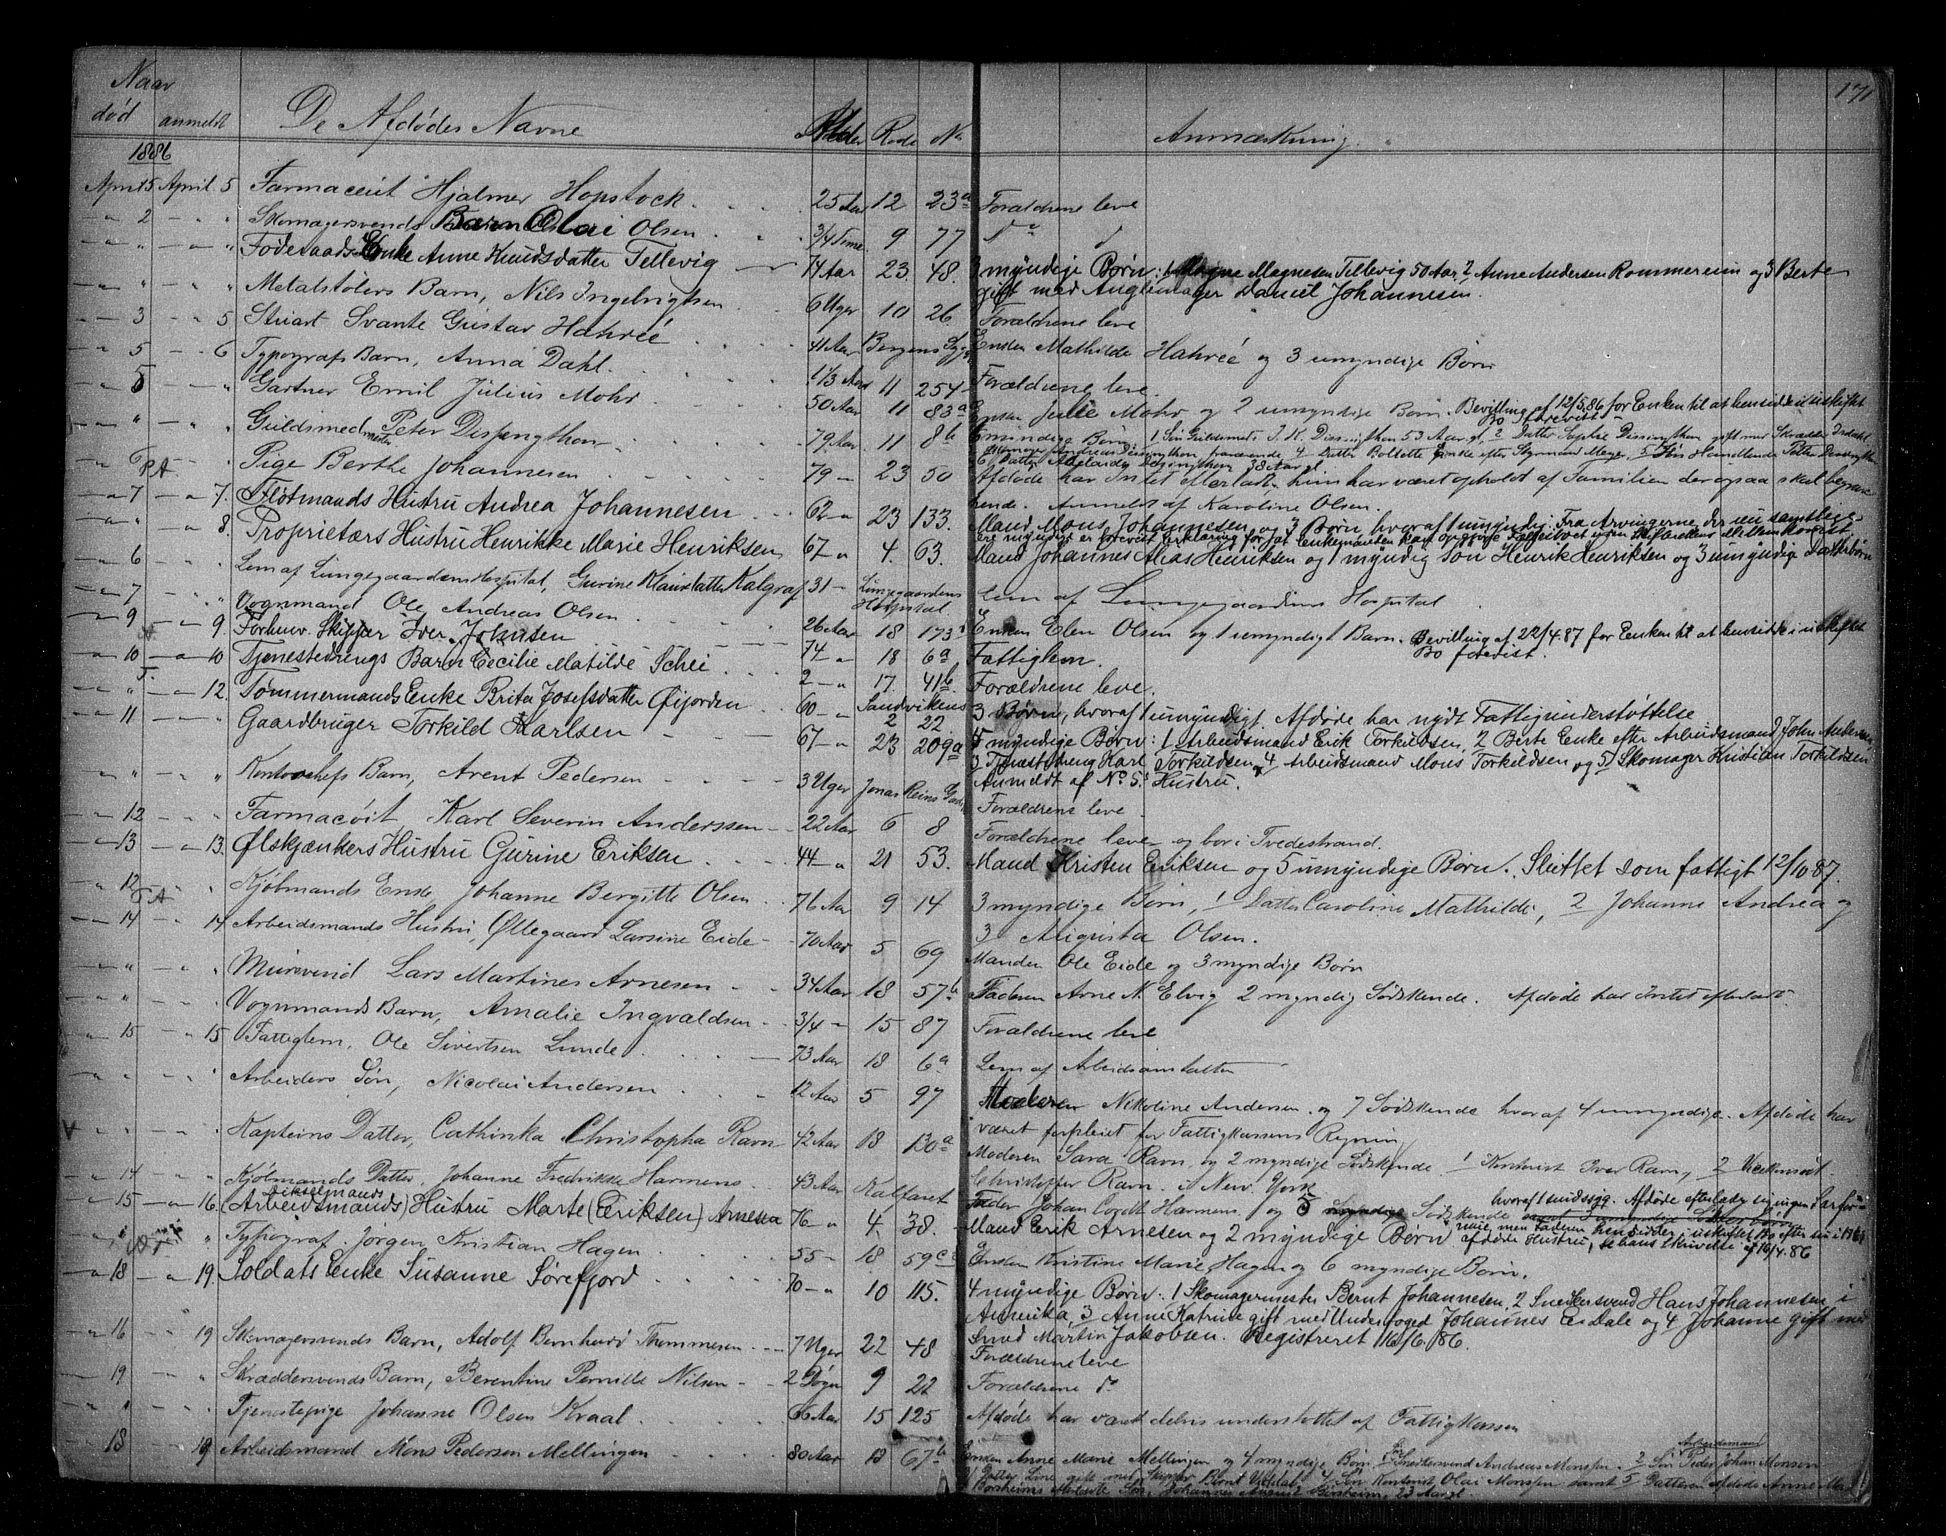 Naar
død anmeldt De Afdødes Navne Alder Rode No Anmærkning. 171
1886
April 5 April 5 Farmaceut Hjalmer Hopstock 25 Aar 12 23a Forældrene leve
2 Skomagersvends Barn Olai Olsen 3/4 Time 9 77 do
Føderaads Enke Anne Knudsdatter Tellevig 74 Aar 23 48. 3 myndige Børn: 1 Magne Magnesen Tellevig 50 Aar, 2, Anne Andersen Rommereim og 3 Berte
gift med Anglemager Daniel Johannesen.
Metalstølers Barn, Nils Ingebrigtsen 6 Uger 10 26 Forældrene leve
3 5 Stuart Svante Gustav Hahreé 41 Aar Bergens Enken Mathilde Hahreé og 3 umyndige Børn
5 6 Typografs Barn, Anna Dahl. 1 1/3 Aar 11 254 Forældrene leve.
5 Gartner Emil Julius Mohr 50 Aar 11 83a Enken Julie Mohr og 2 umyndige Børn. Bevilling af 12/5.86 for Enken til at hensidde i uskiftet
Bo forevist.
Guldsmedmester Peter Dissingthon 79 Aar 11 8b 6 myndige Børn, 1 Søn Guldsmed J. K. Dissingthon 53 Aar gl, 2 Datter Sophie Dissingthon gift med Skrædder Irdahl
Andreas Dissingthon fraværende 4 Datter Bolette Enke efter Styrmand Meyer, 5 Søn Handlende Petter Dissingthon
6, Datter Dissingthon 38 Aar gl.
6 Pige Berthe Johannesen 79 23 50 Afdøde har Intet efterladt, hun har været opholdt af Familien der ogsaa skal begrave
hende. Anmeldt af Karoline Olsen.
7 7. Fløtmands Hustru Andrea Johannesen 62 23 133. Mand Mons Johannesen og 3 Børn, hvoraf 1 umyndig. Fra Arvingerne, der nu samtlige
ere myndige er forevist Erklæring for, at Enkemanden kan
8. Proprietærs Hustru Henrikke Marie Henriksen 67 4. 63. Mand Johannes Alias Henriksen og 1 myndig Søn Henrik Henriksen og 3 umyndige Datterbørn
6 Lem af Lungegaardens Hospital, Gurine Klausdatter Kalgraf 31 Lungegaardens Hospital Lem af Lungegaardens Hospital
7 Vognmand Ole Andreas Olsen 26 Aar 18 173 Enken Elen Olsen og 1 umyndigt Barn. Bevilling af 22/4.87 for Enken til at hensidde i uskiftet
Bo forevist.
9 9. Forhenv. Skipper Iver Johnsen 74 18 6a Fattiglem.
10 10 Tjenestedrengs Barn Cecilie Matilde Schei 2 17. 41b. Forældrene leve.
5. 12. Tømmermands Enke Brita Josefsdatter Øijorden 60 Sandvikens 2 22 3 Børn, hvoraf 1 umyndigt. Afdøde har nydt Fattigunderstøttelse
11 Gaardbruger Torkild Karlsen 67 23 209a 5 myndige Børn: 1 Arbeidsmand Erik Torkildsen, 2 Berte Enke efter Arbeidsmand John Andersen
3 Tjenestdreng Karl Torkildsen 4 Arbeidsmand Mons Torkildsen og 5 Skomager Kristian Torkildsen
Anmeldt af No 5's Hustru.
Kontorchefs Barn, Arent Pedersen 3 Uger Jonas Reins Gade Forældrene leve
12 Farmacøit Karl Severin Anderssen 22 Aar 6 8 Forældrene leve og bor i Tvedestrand.
13 13. Ølskjænkers Hustru Gurine Eriksen 44 21 53. Mand Kristen Eriksen og 5 umyndige Børn. Sluttet som fattigt 12/10 87.
12 Kjøbmands Enke Johanne Bergitte Olsen 76 Aar 9 14 3 myndige Børn, 1 Datter Caroline Mathilde, 2 Johanne Andrea og
3 Augusta Olsen.
14 14 Arbeidsmands Hustru, Øllegaard Larsine Eide 70 Aar 5 69 Manden Ole Eide og 3 myndige Børn
Mursvend Lars Martines Arnesen 34 Aar 18 57b Faderen Arne N. Elvig 2 myndig Sødskende. Afdøde har Intet efterladt.
Vognmands Barn, Amalie Ingvaldsen 3/4 15 87 Forældrene leve
15 15 Fattiglem, Ole Sivertsen Lunde 73 Aar 18 6a Lem af Arbeidsanstalten
Arbeiders Søn, Nicolai Andersen 12 Aar 5 97 Moderen Nikoline Andersen og 7 Sødskende hvoraf 4 umyndige. Afdøde har
været forpleiet for Fattigkassens Regning
Kapteins Datter, Cathinka Christopha Ravn 42 Aar 18 130a Moderen Sara Ravn, og 2 myndige Sødskende 1 Kontorist Iver Ravn, 2
Christoffer Ravn i New York
14 Kjøbmands Datter, Johanne Fredrikke Harmens 43 Aar Kalfaret Fader Johan Cordt Harmens og 5 myndige Sødskende
15 16. (Arbeidsmands) Hustru Marte (Eriksen) Arnesen 76 4. 38. Mand Erik Arnesen og 2 myndige Børn
Typograf. Jørgen Kristian Hagen 55 18 59c Enken Kristine Marie Hagen og 6 myndige Børn.
18 19 Soldats Enke Susanne Sørefjord 70 10 115. 4 myndige Børn: 1 Skomagermester Bernt Johannesen, 2 Snedkersvend Hans Johannesen i
Amerika, 3 Anne Katrine gift med Underfoged Johannes Eidale og 4 Johanne gift med
Smed Martin Jakobsen. Registreret 16/6 86.
16 19 Skomagersvends Barn, Adolf Bernhard Thommesen 7 Uger 22 48 Forældrene leve
19 Skræddersvends Barn, Berentine Pernille Nilsen 2 Døgn 9 22 Forældrene do
Tjenestepige Johanne Olsen Kraal 66 Aar 15 125 Afdøde har været delvis understøttet af Fattigkassen
18 19 Arbeidsmand Mons Pedersen Mellingen 80 Aar 13 67b Enken Anne Marie Mellingen og 4 myndige Børn 1 Søn Snedkersvend Andreas Monsen. 2 Søn Arbeidsmand Peder Johan Monsen
3/ Datter Line gift med Skipper Bernt 4 Søn Kontorist Olai Monsen samt 5 Datteren Afdøde Anne
Søn, Johannes August Børsheim, 23 Aar gl.